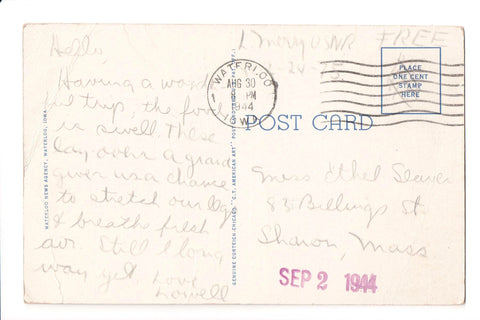 Hello,
Having a wonder
ful trip, the food
is swell. These
lay-over a grand
give us a chance
to stretch our legs
& breathe fresh
air. Still a long
way yet. Love
Lowell
L Merry USNR
FREE
WATERLOO
AUG 30
PM
1944
IOWA
PLACE
ONE CENT
STAMP
HERE
POST CARD
Miss Ethel Seaver
83 Billings St
Sharon, Mass
SEP 2 1944
WATERLOO NEWS AGENCY, WATERLOO, IOWA
GENUINE CURTEICH-CHICAGO "C.T. AMERICAN ART" POST CARD